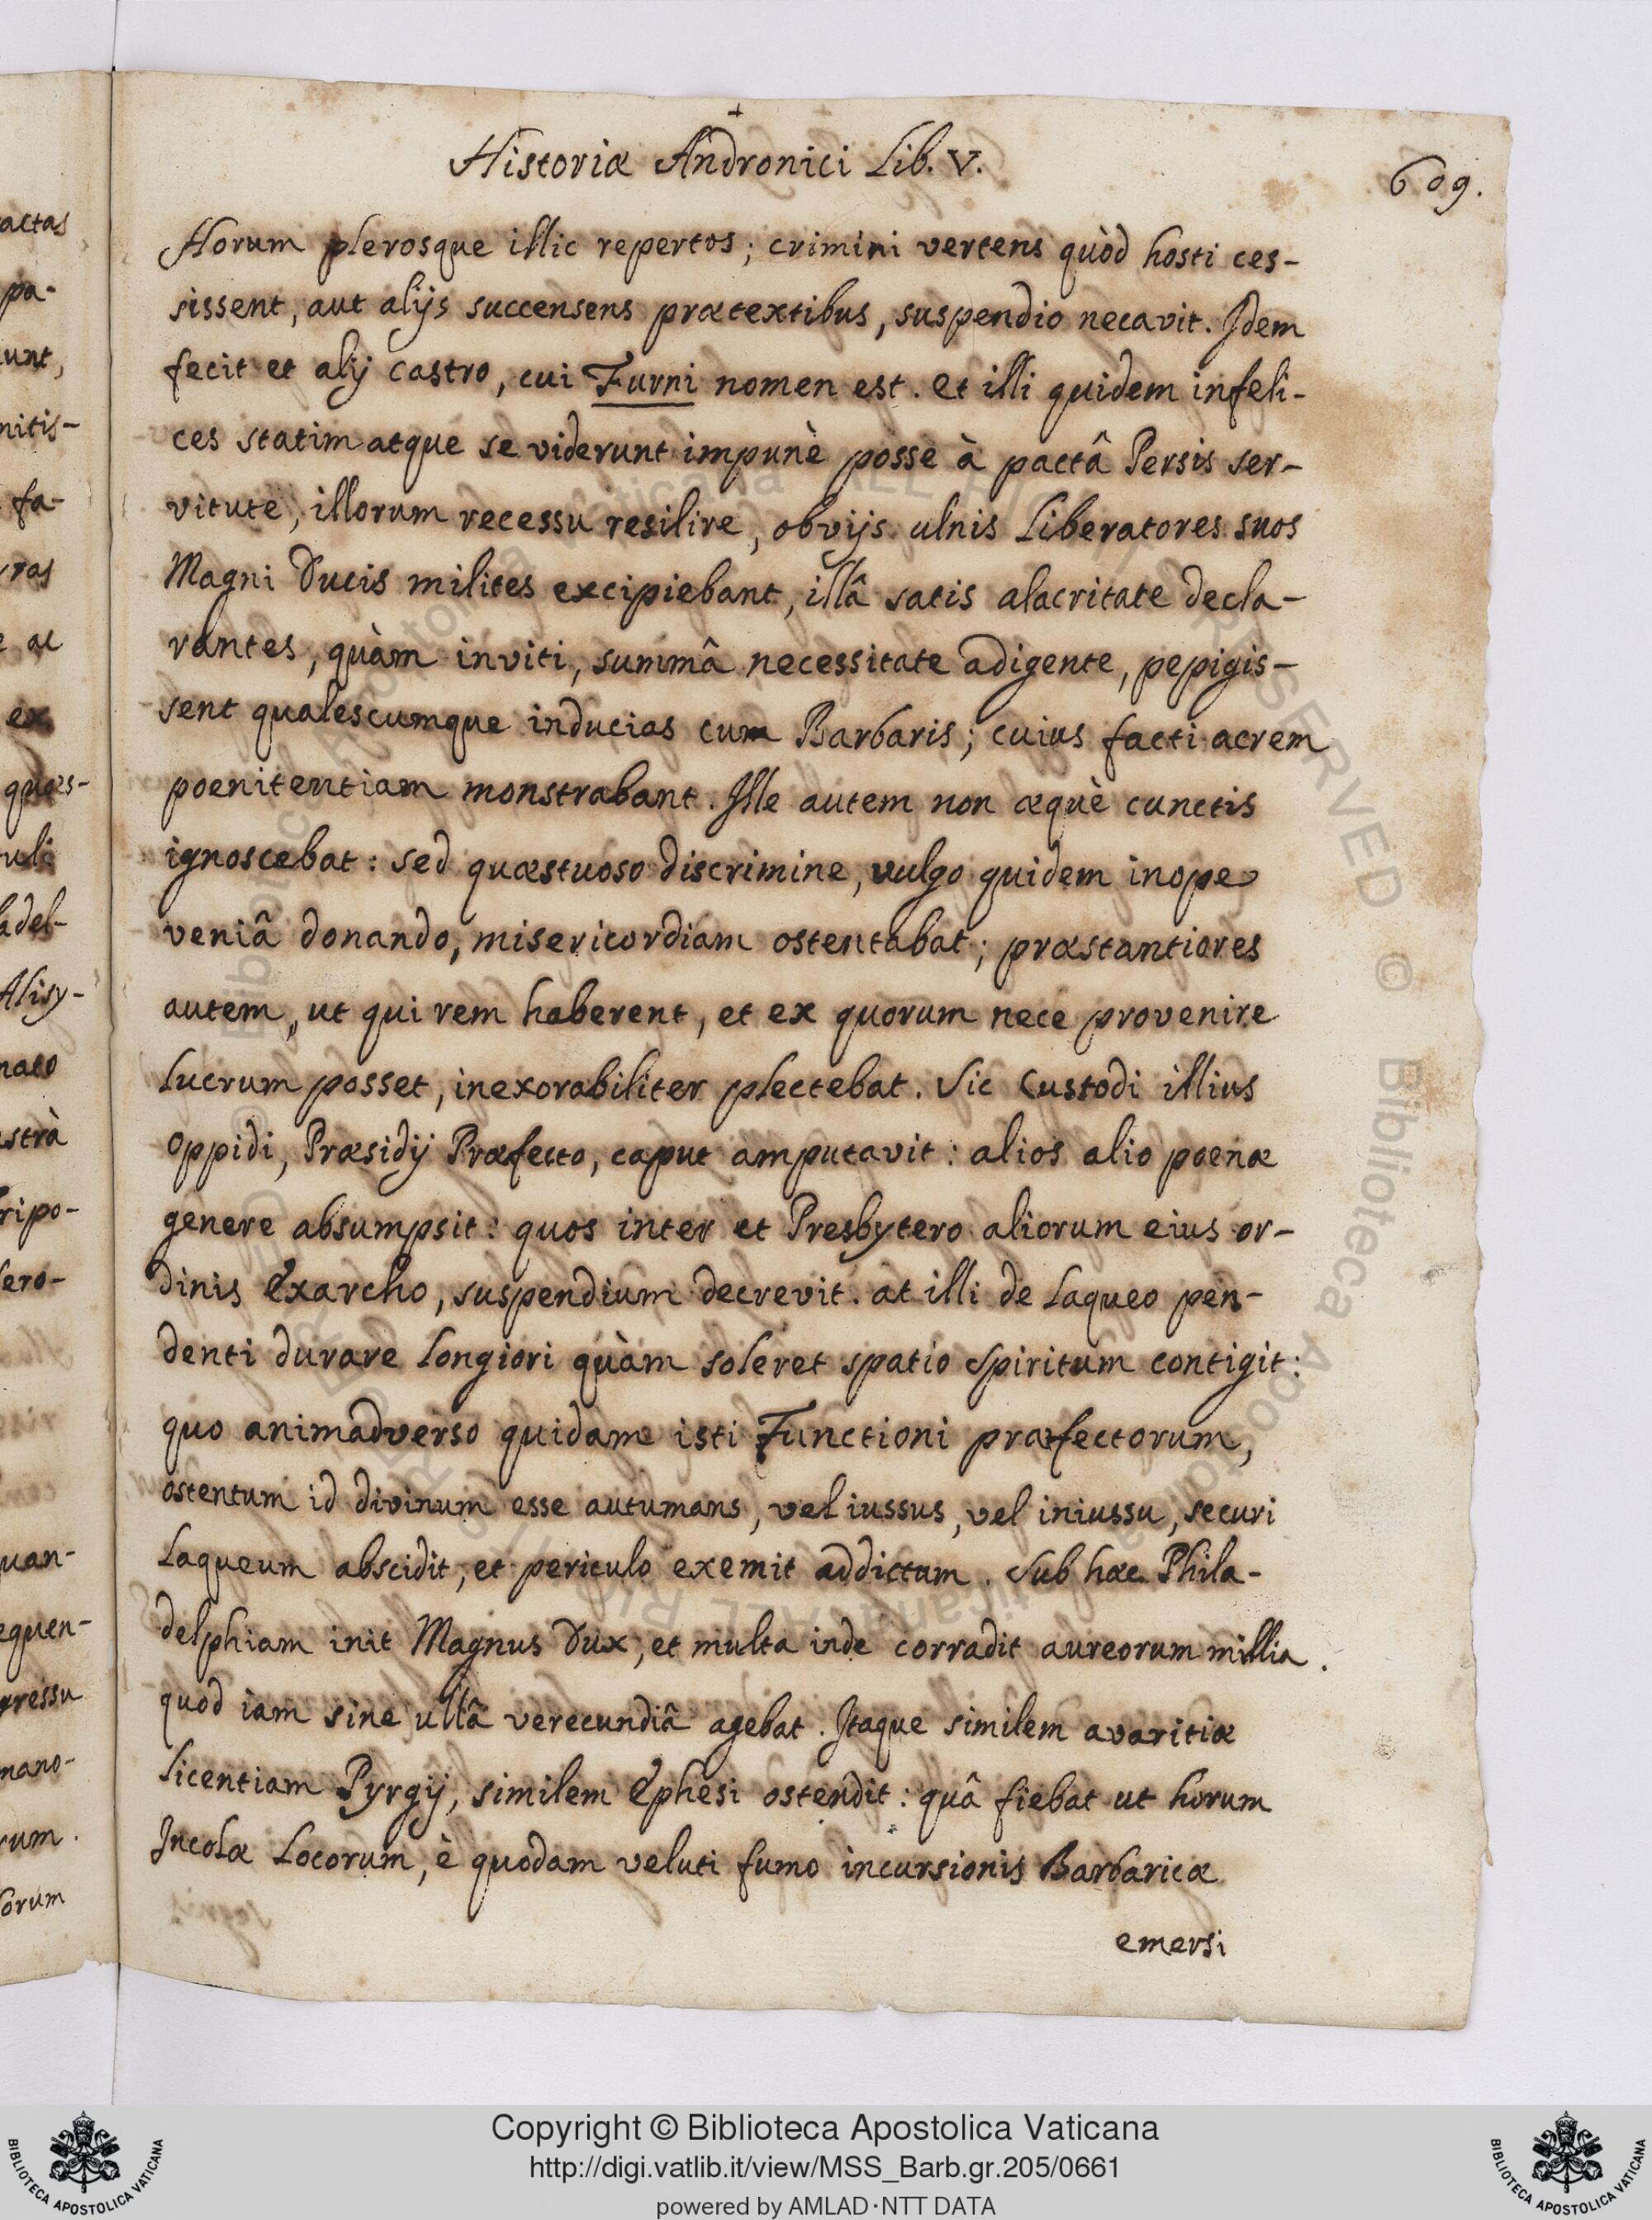 +
Historiæ Andronici Lib. V.
609.
Horum plerosque illic repertos; crimini vertens quòd hosti ces-
sissent, aut alijs succensens prætextibus, suspendio necavit. Idem
fecit et alij castro, cui Furni nomen est. et illi quidem infeli-
ces statim atque se viderunt impunè posse à pactâ Persis ser-
vitute, illorum recessu resilire, obvijs ulnis Liberatores suos
Magni Ducis milites excipiebant, illâ satis alacritate decla-
rantes, quàm inviti, summâ necessitate adigente, pepigis-
sent qualescumque inducias cum Barbaris; cuius facti acrem
poenitentiam monstrabant. Ille autem non æquè cunctis
ignoscebat: sed quæstuoso discrimine, vulgo quidem inope
veniâ donando, misericordiam ostentabat; præstantiores
autem, ut qui rem haberent, et ex quorum nece provenire
lucrum posset, inexorabiliter plectebat. Sic Custodi illius
oppidi, Præsidij Præfecto, caput amputavit: alios alio poenæ
genere absumpsit: quos inter et Presbytero aliorum eius or-
dinis Exarcho, suspendium decrevit. at illi de Laqueo pen-
denti durare longiori quàm soleret spatio spiritum contigit:
quo animadverso quidam isti Functioni præfectorum,
ostentum id divinum esse autumans, vel iussus, vel iniussu, securi
Laqueum abscidit, et periculo exemit addictum. Sub hæc Phila-
delphiam init Magnus Dux, et multa inde corradit aureorum millia.
quod iam sine ullâ verecundiâ agebat. Itaque similem avaritiæ
licentiam Pyrgij, similem Ephesi ostendit: quâ fiebat ut horum
Incolæ Locorum, è quodam veluti fumo incursionis Barbaricæ
emersi
actas
pa-
unt,
nitis-
fa-
ras
e ac
ex
quæs-
uli
adel-
Alisy-
naco
strà
ripo-
ero-
uan-
equen-
gressu
mano-
rum.
orum
Copyright © Biblioteca Apostolica Vaticana
http://digi.vatlib.it/view/MSS_Barb.gr.205/0661
powered by AMLAD·NTT DATA
BIBLIOTECA APOSTOLICA VATICANA
BIBLIOTECA APOSTOLICA VATICANA